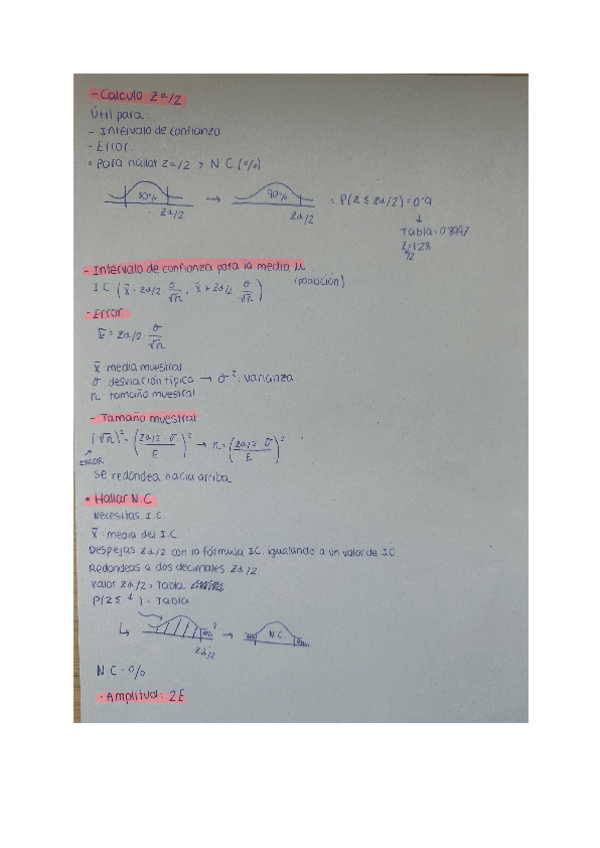 - Calculo Zα/2
Útil para:
- Intervalo de confianza
- Error
• Para hallar Zα/2 → N.C (%)
80% → 90% = P(Z ≤ Zα/2) = 0'9
Zα/2 Zα/2 ↓
Tabla = 0'8997
Zα/2 = 1'28
- Intervalo de confianza para la media μ
(población)
I.C (x̄ - Zα/2 · σ/√n, x̄ + Zα/2 · σ/√n)
- Error
E = Zα/2 · σ/√n
x̄ media muestral
σ desviación típica → σ²: varianza
n tamaño muestral
- Tamaño muestral
(√n)² = (Zα/2 · σ / E)² → n = (Zα/2 · σ / E)²
ERROR
Se redondea hacia arriba
• Hallar N.C
Necesitas I.C.
x̄ = media del I.C
Despejas Zα/2 con la fórmula I.C. igualando a un valor de I.C.
Redondeas a dos decimales Zα/2
Valor Zα/2 → Tabla
P(Z ≤ ) = Tabla
→ N.C.
Zα/2
N.C = %
- Amplitud: 2E